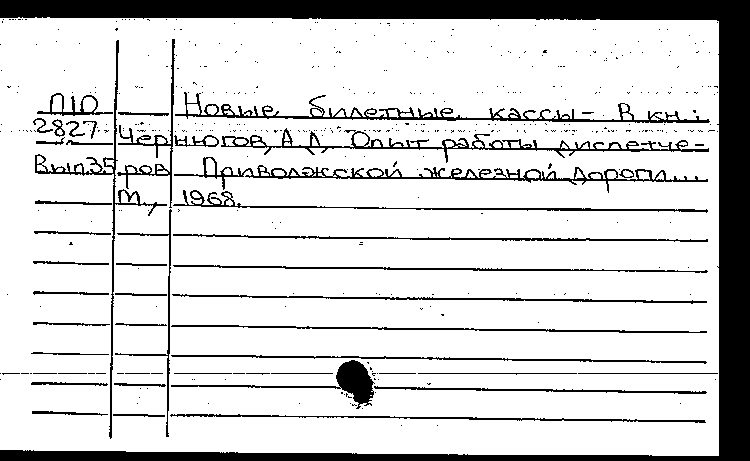 П10 Новые билетные кассы - В кн.:
2827 Чернюгов, А.Д. Опыт работы диспетче-
Вып.35 ров Приволжской железной дороги...
М., 1968.